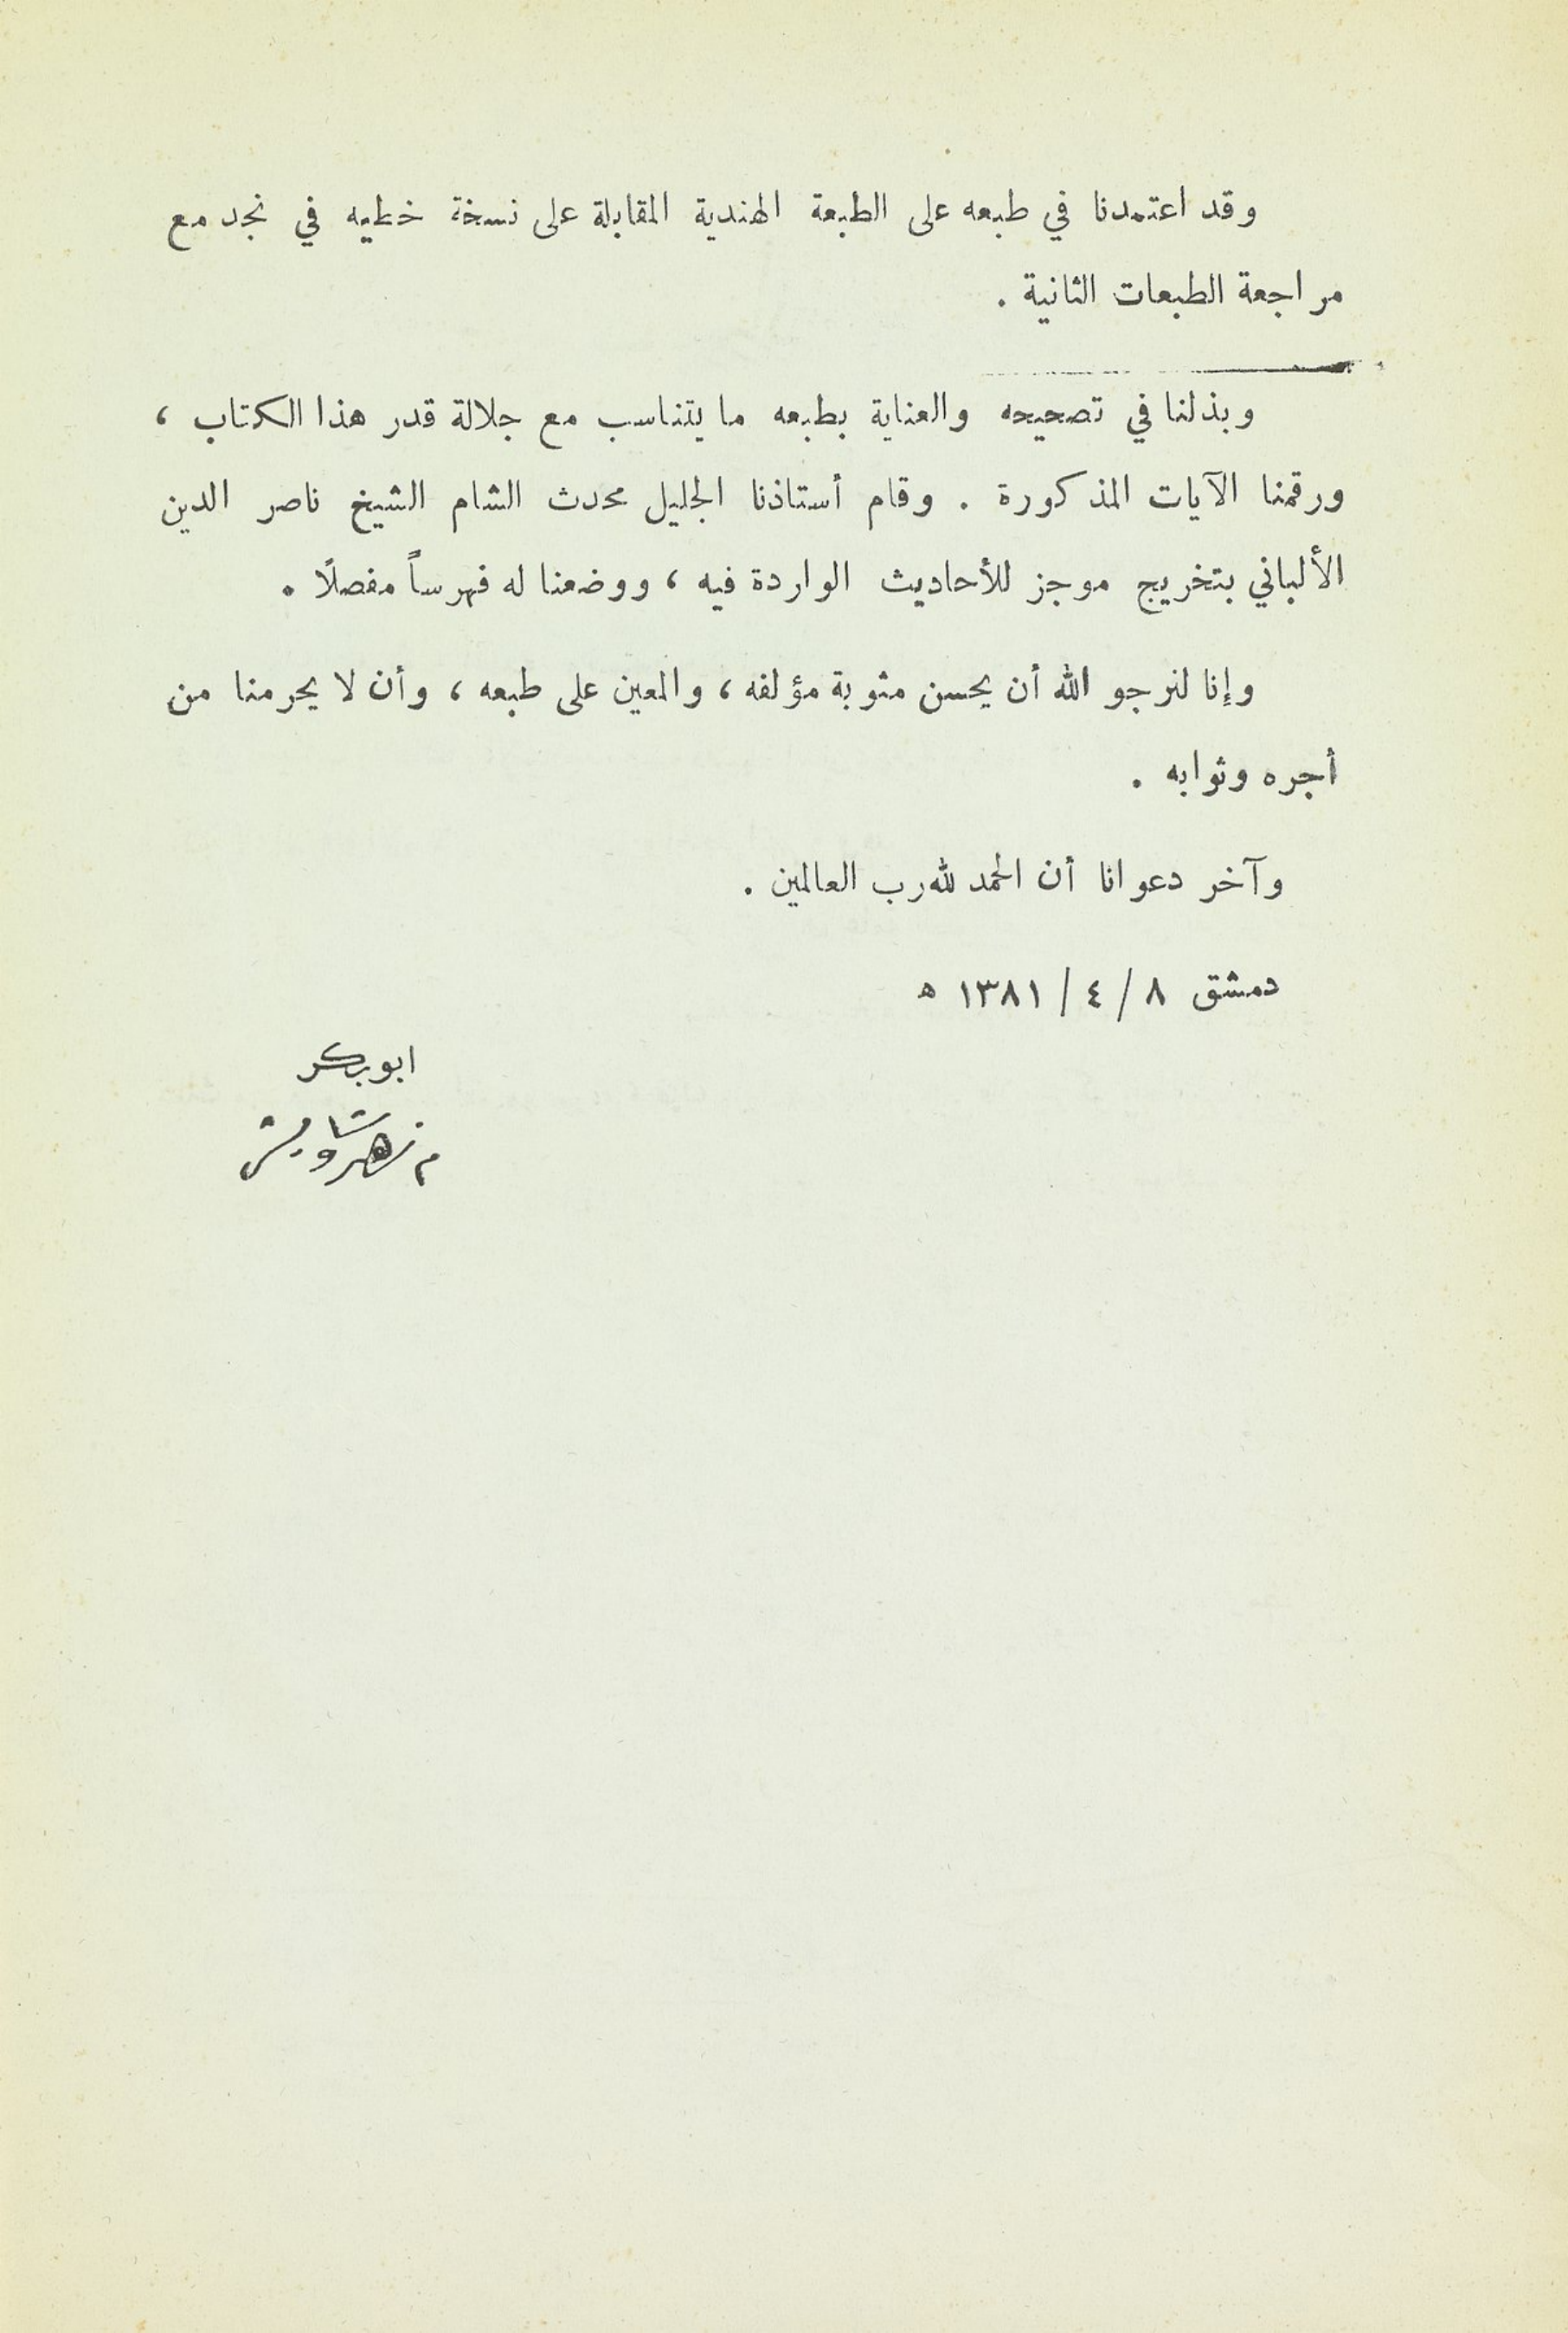 وقد اعتمدنا في طبعه على الطبعة الهندية المقابلة على نسخة خطيه في نجد مع
مراجعة الطبعات الثانية .
وبذلنا في تصحيحه والعناية بطبعه ما يتناسب مع جلالة قدر هذا الكتاب ،
ورقمنا الآيات المذكورة . وقام أستاذنا الجليل محدث الشام الشيخ ناصر الدين
الألباني بتخريج موجز للأحاديث الواردة فيه ، ووضعنا له فهرساً مفصلًا .
وإنا لنرجو الله أن يحسن مثوبة مؤلفه ، والمعين على طبعه ، وأن لا يحرمنا من
أجره وثوابه .
وآخر دعوانا أن الحمد لله رب العالمين .
دمشق ٨ / ٤ / ١٣٨١ ه
ابوبكر
م زهير شاويش